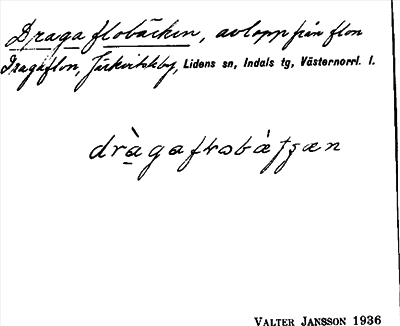 Dragaflobäcken, avlopp från flon
Dragaflon, Järkvitsle by, Lidens sn, Indals tg, Västernorrl. l.
VALTER JANSSON 1936